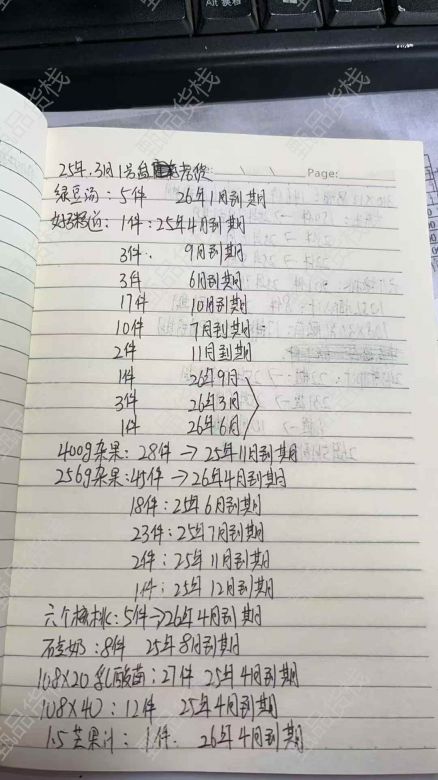 Alt 换档
Page:
25年.3月1号 老货
绿豆汤：5件 26年1月到期
1件：25年4月到期
3件. 9月到期
3件 6月到期
17件 10月到期
10件 7月到期
2件 11月到期
1件 26年9月
3件 26年3月
1件 26年6月
400g杂果：28件 → 25年11月到期
256g杂果：45件 → 26年4月到期
18件：25年6月到期
23件：25年7月到期
2件：25年11月到期
1件：25年12月到期
六个核桃：5件→26年4月到期
8件 25年8月到期
108×20乳酸菌：27件 25年4月到期
108×40：12件 25年4月到期
1.5芒果汁：1件. 26年4月到期
甄品货栈